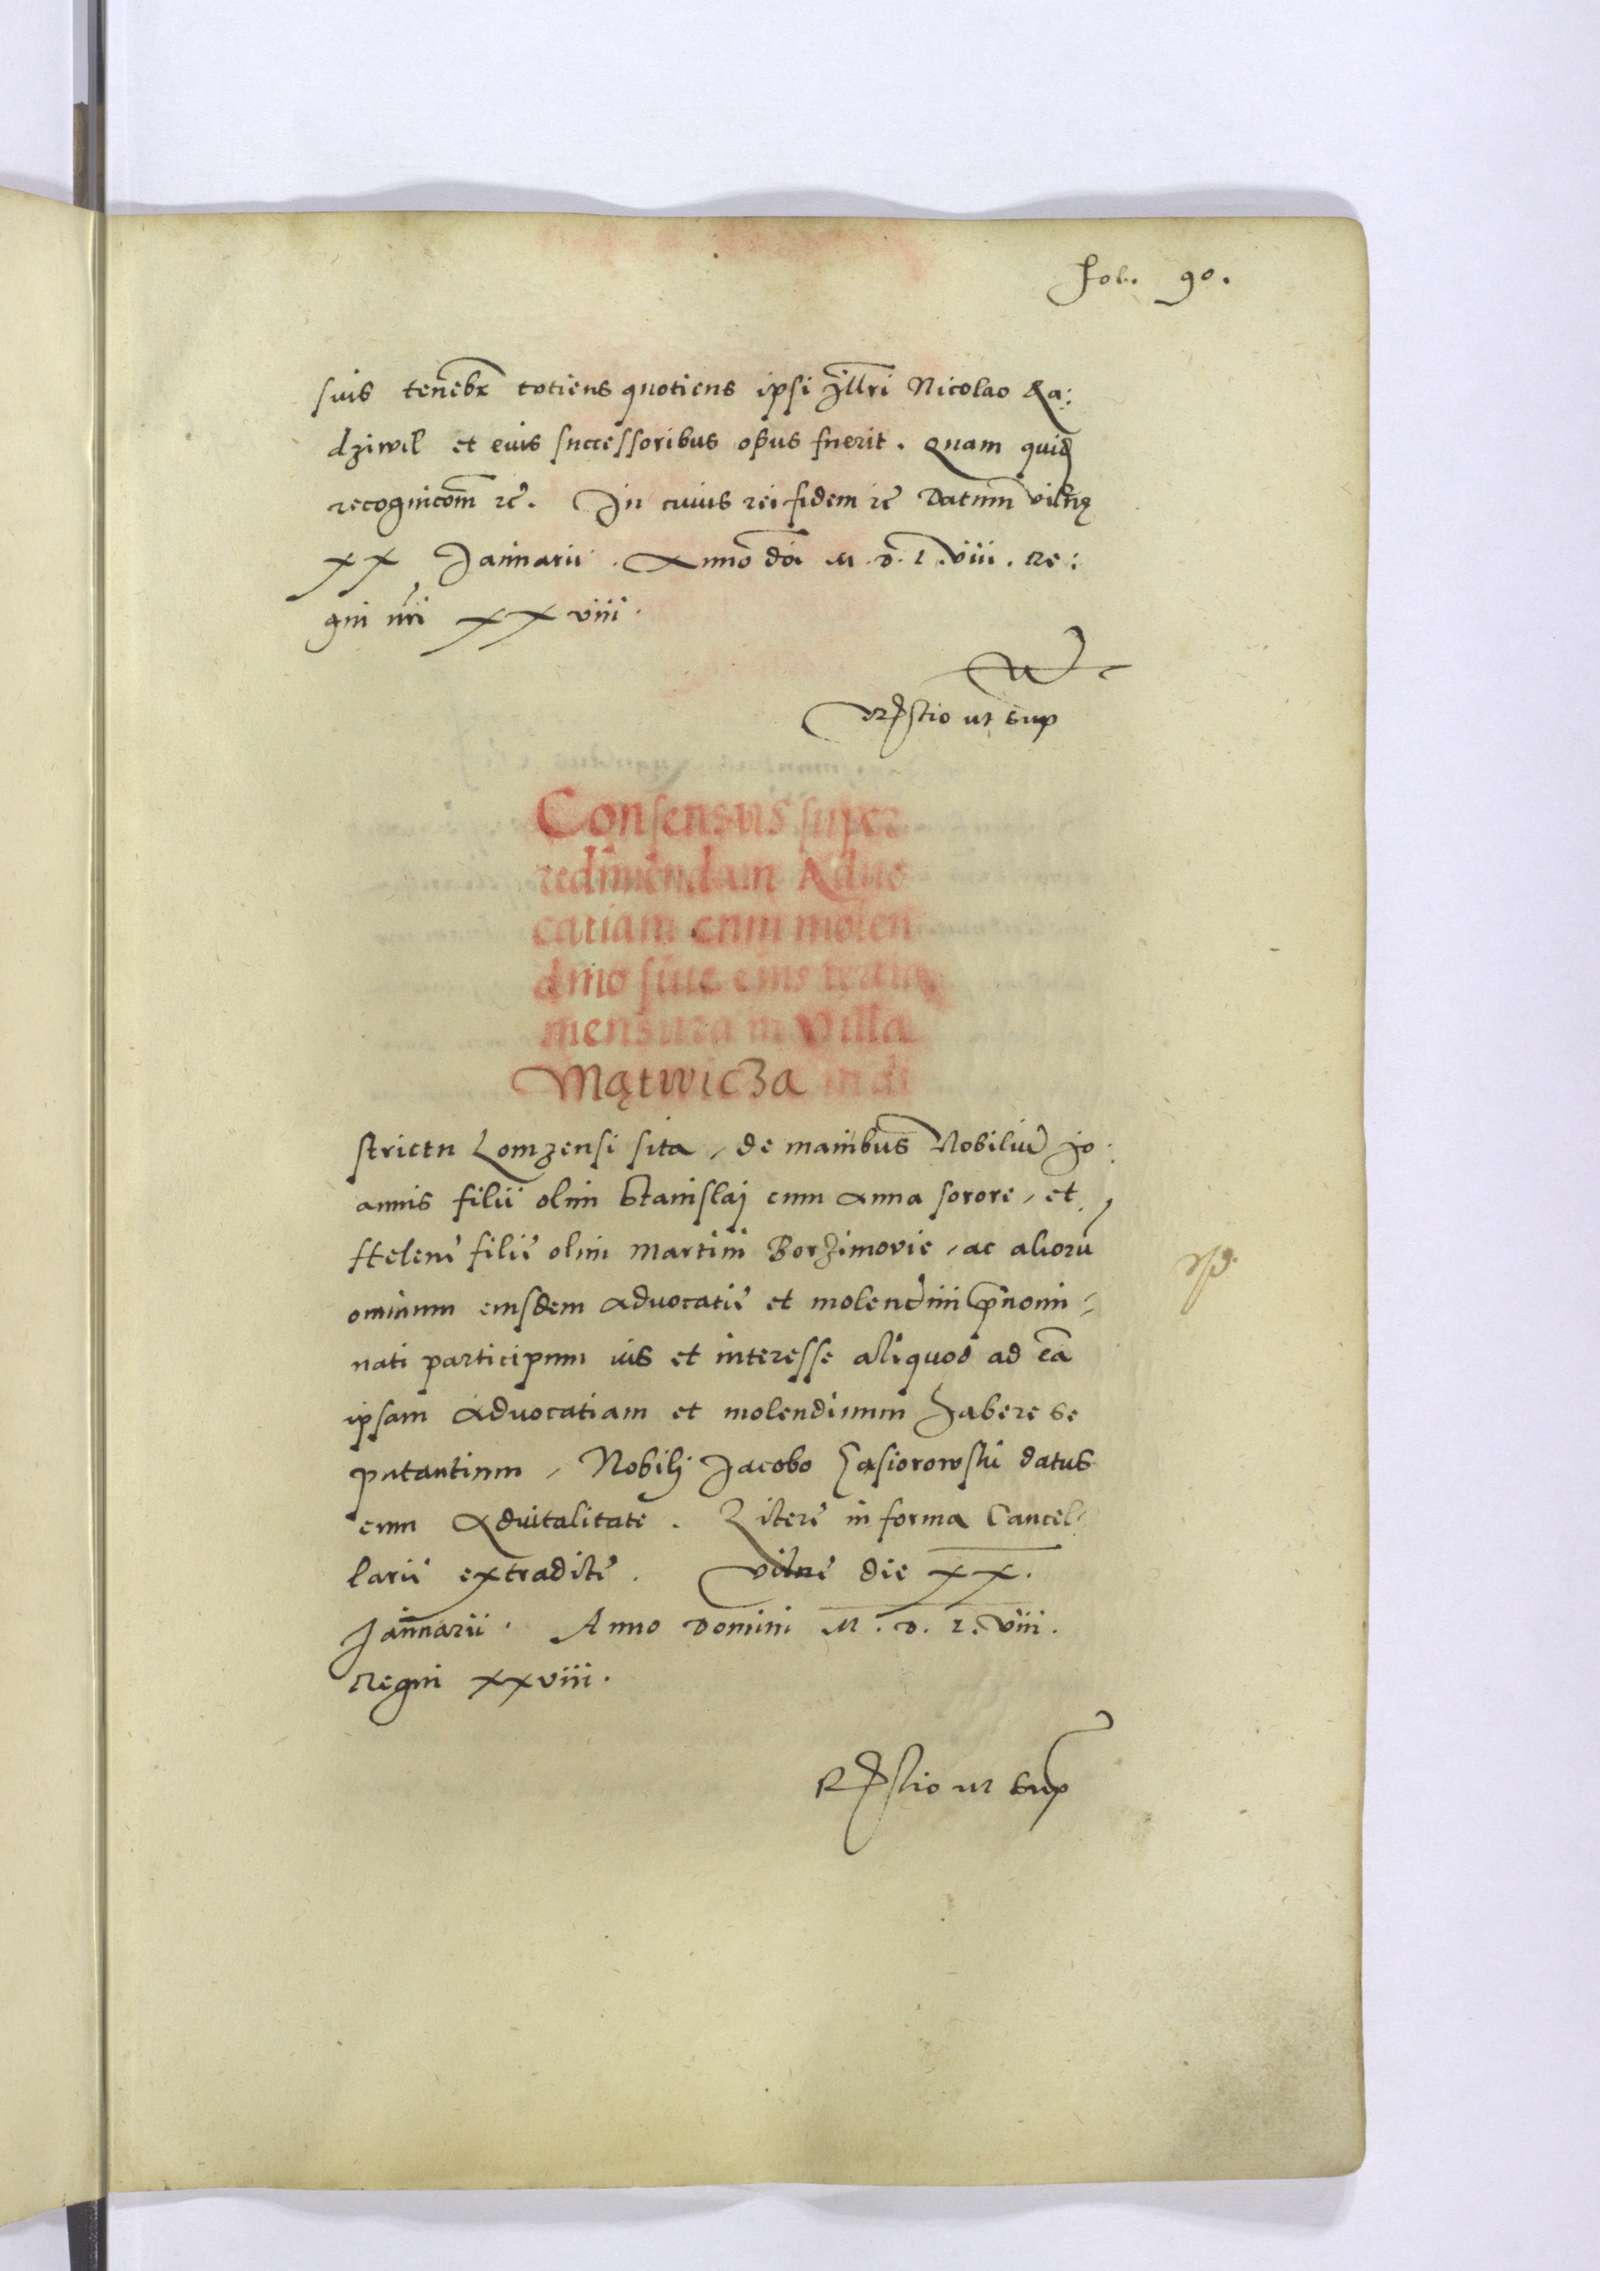 fol. 90.
suis teneb͞r totiens quotiens ipsi Jll͞ri Nicolao Ra:
dziwil et eius successoribus opus fuerit. Quam quid
recognicom͞ rc̃. In cuius rei fidem rc̃ Datum Vilnę
XX Januarii. Anno do͞i M.D.L.viii. Re:
gni n͞ri XXviii.
Rẽstio ut sup
Consensus super
redimendam Aduo
catiam cum molen
dino siue eius
mensura in Villa
Mątwicza in di
strictu Lomzensi sita, de manibus Nobiliũ Jo:
annis filii olim Stanislaj cum Anna sorore, et
Helenę filię olim Martini Borzimovię, ac alioru͞
omnium eiusdem advocatię et molendini p͞nomi:
nati participum ius et interesse aliquod ad ea͞
ipsam Advocatiam et molendinum habere se
putantium, Nobilj Jacobo Gasiorowski datus
cum Advitalitate. Literę in forma Cancel:
larii extraditę. Vilnę die XX.
Januarii. Anno Domini M.D.L.viii.
Regni xxviii.
Rẽstio ut sup